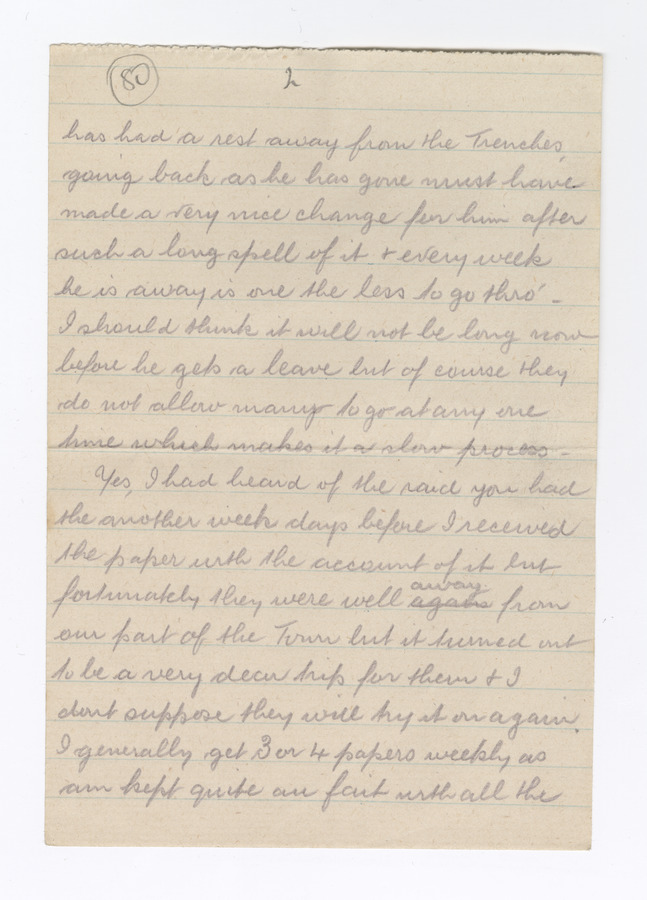 80
2
has had a rest away from the Trenches
going back as he has gone must have
made a very nice change for him after
such a long spell of it + every week
he is away is one the less to go thro' -
I should think it will not be long now
before he gets a leave but of course they
do not allow many to go at any one
time which makes it a slow process -
Yes, I had heard of the raid you had
the another week days before I received
the paper with the account of it but
away
fortunately they were well again from
our part of the Town but it turned out
to be a very dear trip for them + I
dont suppose they will try it on again.
I generally get 3 or 4 papers weekly as
am kept quite au fait with all the